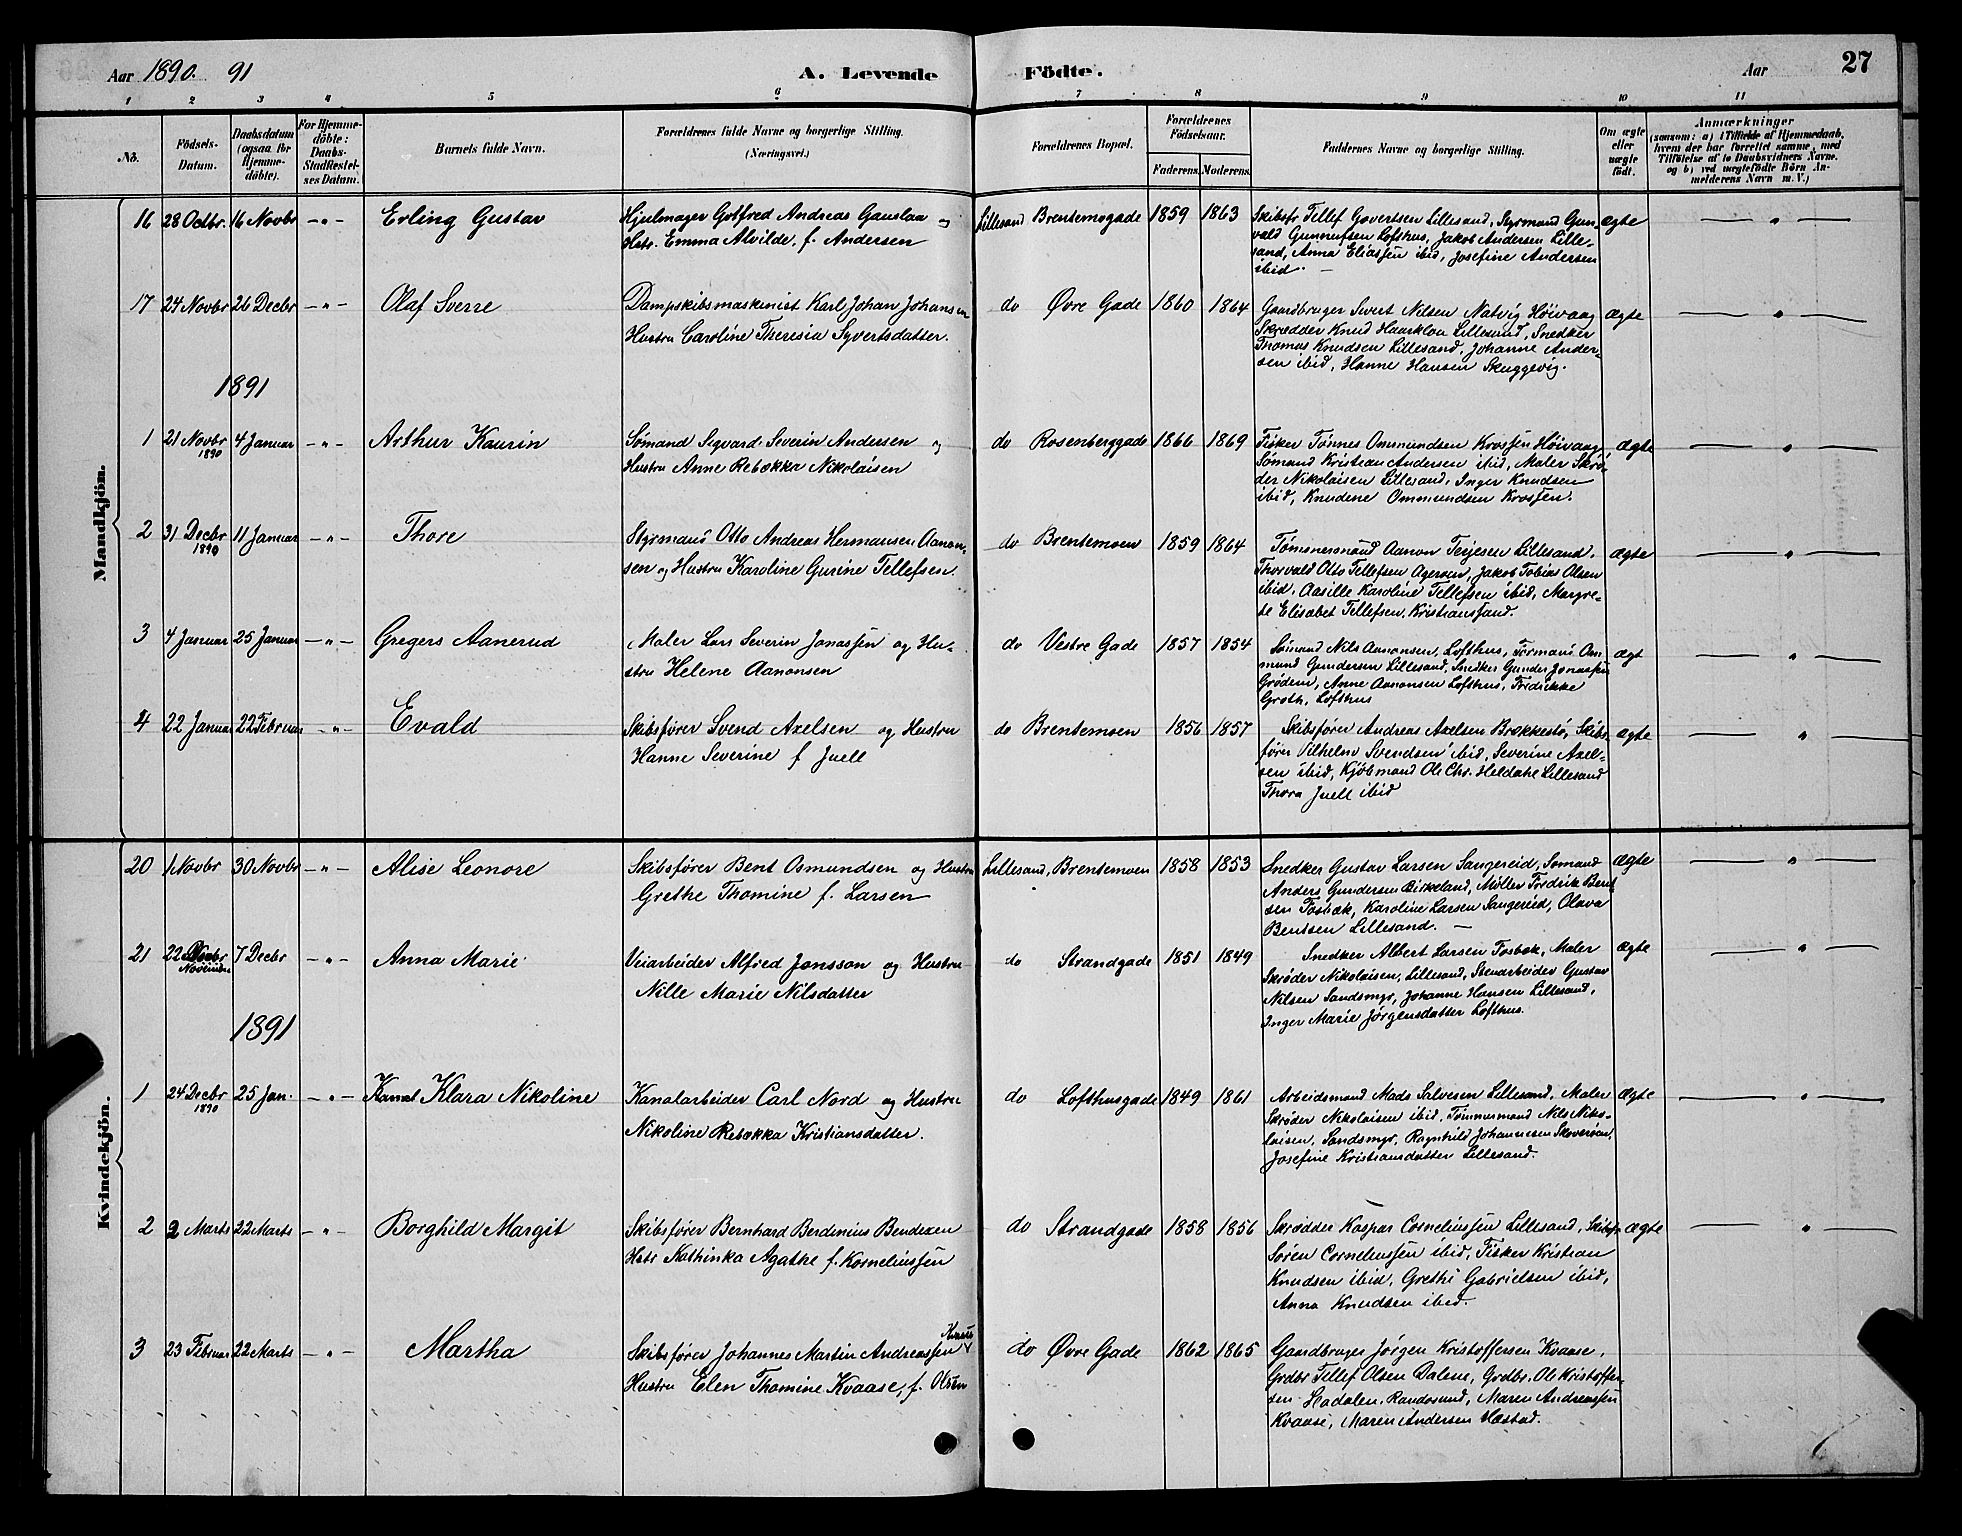 Aar 1890. 91
A. Levende
Födte.
Aar
27
1 2 3 4 5 6 7 8 9 10 11
No.
Födsels-
Datum.
Daabsdatum
(ogsaa for
Hjemme-
döbte).
For Hjemme-
döbte:
Daabs-
Stadfæstel-
ses Datum.
Barnets fulde Navn.
Forældrenes fulde Navne og borgerlige Stilling.
(Næringsvei.)
Forældrenes Bopæl.
Forældrenes
Födselsaar.
Faderens. Moderens.
Faddernes Navne og borgerlige Stilling.
Om ægte
eller
uægte
födt.
Anmærkninger
(saasom: a) i Tilfælde af Hjemmedaab,
hvem der har forrettet samme, med
Tilföielse af to Daabsvidners Navne.
og b) ved uægtefödte Börn An-
melderens Navn m. V.)
Mandkjön.
16 28 Octbr. 16 Novbr — " — Erling Gustav
Hjulmager Gotfred Andreas Gauslaa og
Hstr. Emma Alvilde, f. Andersen
Lillesand Brentemogade 1859 1863
Skibsfr Tellef Govertsen Lillesand, Styrmand Gun-
vald Gunnufsen Lofthus, Jakob Andersen Lille-
sand, Anna Eliassen ibid, Josefine Andersen
ibid. —
ægte — " —
17 24 Novbr 26 Decbr — " — Olaf Sverre
Dampskibsmaskinist Karl Johan Johansen
Hustru Caroline Theresia Syvertsdatter.
do Øvre Gade 1860 1864
Gaardbruger Sivert Nilsen Natvig Höivaag
Skrædder Knud Haarklou Lillesand, Snedker
Thomas Knudsen Lillesand, Johanne Ander-
sen ibid, Hanne Hansen Skuggevig.
ægte — " —
1891
1 21 Novbr 4 Januar — " — Arthur Kaurin
1890
Sømand Sigvard Severin Andersen og
Hustru Anne Rebekka Nikolaisen
do Rosenberggade 1866 1869
Fisker Tönnes Ommundsen Krossen Höivaag
Sømand Kristian Andersen ibid, Maler Skrö-
der Nikolaisen Lillesand, Inger Knudsen
ibid, Knudine Ommundsen Krossen.
ægte — " —
2 31 Decbr 11 Januar — " — Thore
1890
Styrmand Otto Andreas Hermansen Aanon-
sen og Hustru Karoline Gurine Tellefsen.
do Brentemoen 1859 1864
Tømmermand Aanon Terjesen Lillesand,
Thorvald Otto Tellefsen Agerøen, Jakob Tobias Olsen
ibid, Aasille Karoline Tellefsen ibid, Margre-
te Elisabet Tellefsen, Kristianssand.
ægte — " —
3 4 Januar 25 Januar — " — Gregers Aanerud
Maler Lars Severin Jonassen og Hu-
stru Helene Aanonsen
do Vestre Gade 1857 1854
Sømand Nils Aanonsen, Lofthus, Formand Om-
mund Gundersen Lillesand, Snedker Gunder Jonassen
Grødem, Anne Aanonsen Lofthus, Fredrikke
Groth, Lofthus
ægt — " —
4 22 Januar 22 Februar — " — Evald
Skibsfører Svend Axelsen og Hustru
Hanne Severine f Juell
do Brentemoen 1856 1857
Skibsfører Andreas Axelsen Brækkestø, Skibs-
fører Vilhelm Svendsen ibid, Severine Axel-
sen ibid, Kjöbmand Ole Chr. Heldahl Lillesand
Thora Juell ibid
ægte — " —
Kvindekjön.
20 1 Novbr 30 Novbr — " — Alise Leonore
Skibsfører Bent Osmundsen og Hustru
Grethe Thomine f. Larsen
Lillesand, Brentemoen 1858 1853
Snedker Gustav Larsen Sangereid, Sømand
Anders Gundersen Birkeland, Møller Fredrik Bent
sen Fosbæk, Karoline Larsen Sangereid, Olava
Bentsen Lillesand. —
ægte — " —
21 22 7 Decbr — " — Anna Marie
November
Veiarbeider Alfred Jonsson og Hustru
Nille Marie Nilsdatter
do Strandgade 1851 1849
Snedker Albert Larsen Fosbæk, Maler
Skrøder Nikolaisen, Lillesand, Stenarbeider Gustav
Nilsen Sandsmyr, Johanne Hansen Lillesand,
Inger Marie Jørgensdatter Lofthus.
ægte — " —
1891
1 24 Decbr 25 Jan. — " — Klara Nikoline
1890
Kanalarbeider Carl Nord og Hustru
Nikoline Rebekka Kristiansdatter.
do Lofthusgade 1849 1861
Arbeidsmand Mads Salvesen Lillesand, Maler
Skrøder Nikolaisen ibid, Tømmermand Nils Niko-
laisen, Sandsmyr, Ragnhild Johannesen Skoverøen,
Josefine Kristiansdatter Lillesand.
ægte — " —
2 2 Marts 22 Marts — " — Borghild Margit
Skibsfører Bernhard Berdinius Bendixen
Hstr Kathinka Agathe f. Korneliussen
do Strandgade 1858 1856
Skrædder Kaspar Corneliussen Lillesand, Skibsfr
Sören Corneliussen ibid, Fisker Kristian
Knudsen ibid, Grethe Gabrielsen ibid,
Anna Knudsen ibid.
ægte — " —
3 23 Februar 22 Marts — " — Martha
Skibsfører Johannes Martin Andreassen
Hustru Elen Thomine Kvaase, f. Olsen
do Øvre Gade 1862 1865
Gaardbruger Jörgen Kristoffersen Kvaase,
Grdbr Tellef Olsen Dalene, Grdbr. Ole Kristoffer-
sen Hadalen, Randøsund, Maren Andreassen
Kvaase, Maren Andersen Hæstad.